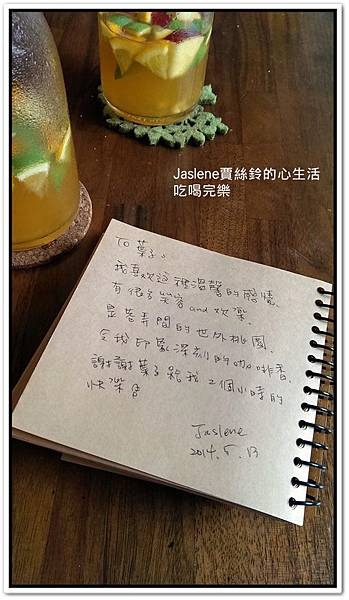 Jaslene賈絲鈴的心生活
吃喝完樂
To 葉子:
我喜歡這裡溫馨的醺憶、
有很多笑容and歡樂、
是巷弄間的世外桃園、
令我印象深刻的咖啡香、
謝謝葉子給我2個小時的
快樂
Jaslene
2014.5.13